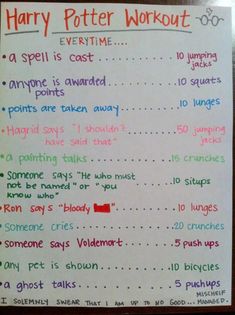 Harry Potter Workout
EVERYTIME....
• a spell is cast ........ 10 jumping
jacks
• anyone is awarded ........ 10 squats
points
• points are taken away ..... 10 lunges
• Hagrid says "I shouldn't ...... 50 jumping
have said that" jacks
• a painting talks ........... 15 crunches
• Someone says "He who must
not be named" or "you ...... 10 situps
know who"
• Ron says "bloody ........ 10 lunges
• Someone cries ............ 20 crunches
• someone says Voldemort .... 5 push ups
• any pet is shown ......... 10 bicycles
• a ghost talks ........... 5 pushups
I SOLEMNLY SWEAR THAT I AM UP TO NO GOOD... MISCHIEF
MANAGED.